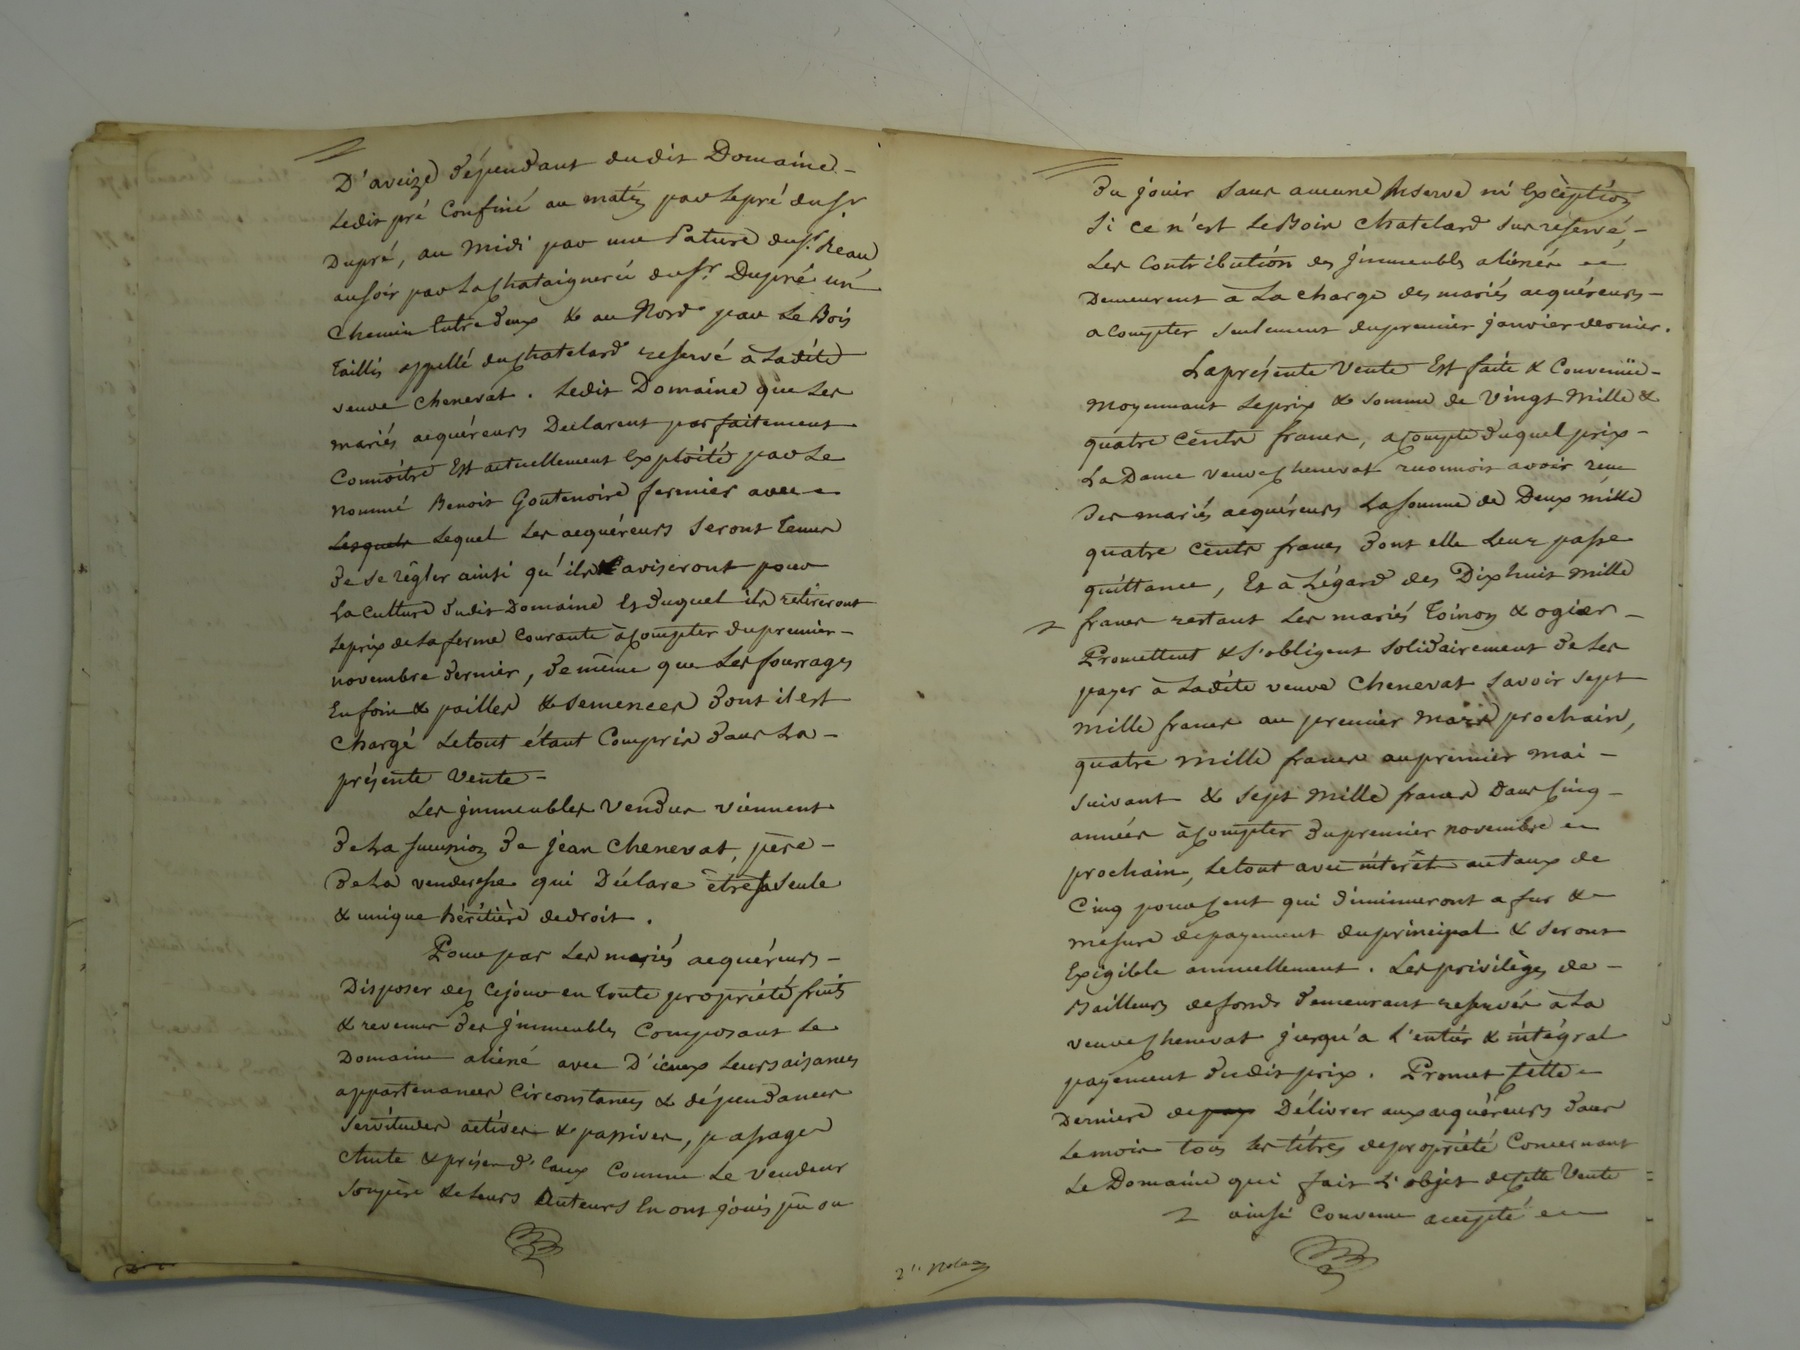 D'aveize dépendant dudit Domaine -
Ledit pré Confiné au matin par Le pré du Sr
Dupré, au Midi par une Pature du Sr. Réau
au soir par La Chataignerie du Sr. Dupré un
Chemin Entre deux & au Nord par Le Bois
Taillis appellé du Chatelard reservé à Ladite
veuve Chenevat. Ledit Domaine que Les
mariés acquéreurs Déclarent parfaitement
Connoitre Est actuellement Exploité par Le
nommé Benoit Goutenoire fermier avec
Lesquels Lequel Les acquéreurs Seront Tenus
de se régler ainsi qu'ils aviseront pour
La Culture dudit Domaine Et duquel ils retireront
Le prix de La ferme Courante à Compter du premier -
novembre dernier, de même que Les fourrages
En foin & pailles & semences dont il est
Chargé Le tout étant Compris dans La -
présente Vente -
Les jmmeubles Vendus viennent
de La succession de jean Chenevat, père -
de La venderesse qui Déclare être sa Seule
& unique héritière de droit.
Pour par Les mariés acquéreurs -
Disposer dez Ce jour en Toute propriété fruits
& revenus des jmmeubles Composant Le
Domaine aliéné avec D'iceux Leurs aisances
appartenances Circonstances & dépendances
Servitudes actives & passives, passages
Chute & prises d'Eaux Comme Le Vendeur
Son père & Leurs Auteurs En ont jouis pû ou
du jouir Sans aucune Réserve ni Exception
Si ce n'est Le Bois Chatelard Sus réservé, -
Les Contribution des jmmeubles aliénés
Demeurent à La charge des mariés acquéreurs -
a Compter Seulement du premier janvier dernier.
La présente Vente Est faite & Convenüe -
Moyennant Le prix & Somme de Vingt Mille &
quatre Cents francs, a Compte duquel prix -
La Dame veuve Chenevat reconnoit avoir reçu
des mariés acquéreurs La Somme de Deux mille
quatre Cents francs dont elle Leur passe
quittance, Et à L'égard des Dix huit Mille
francs restant Les mariés Toinon & ogier -
Promettent & S'obligent Solidairement de Les
payer à Ladite veuve Chenevat Savoir Sept
Mille francs au premier Mars prochain,
quatre Mille francs au premier mai -
Suivant & Sept Mille francs Dans Cinq -
années à Compter du premier novembre
prochain, Le tout avec intérêt au taux de
Cinq pour Cent qui diminueront a fur &
mesure de payement du principal & Seront
Exigible annuellement. Les privilèges de -
Bailleurs de fonds demeurant réservés à La
veuve Chenevat jusqu'à L'entier & intégral
payement dudit prix. Promet Cette
Dernière de pay Délivrer aux acquéreurs dans
Le mois tous les titres de propriété Concernant
Le Domaine qui fait L'objet de Cette Vente
ainsi Convenu accepté